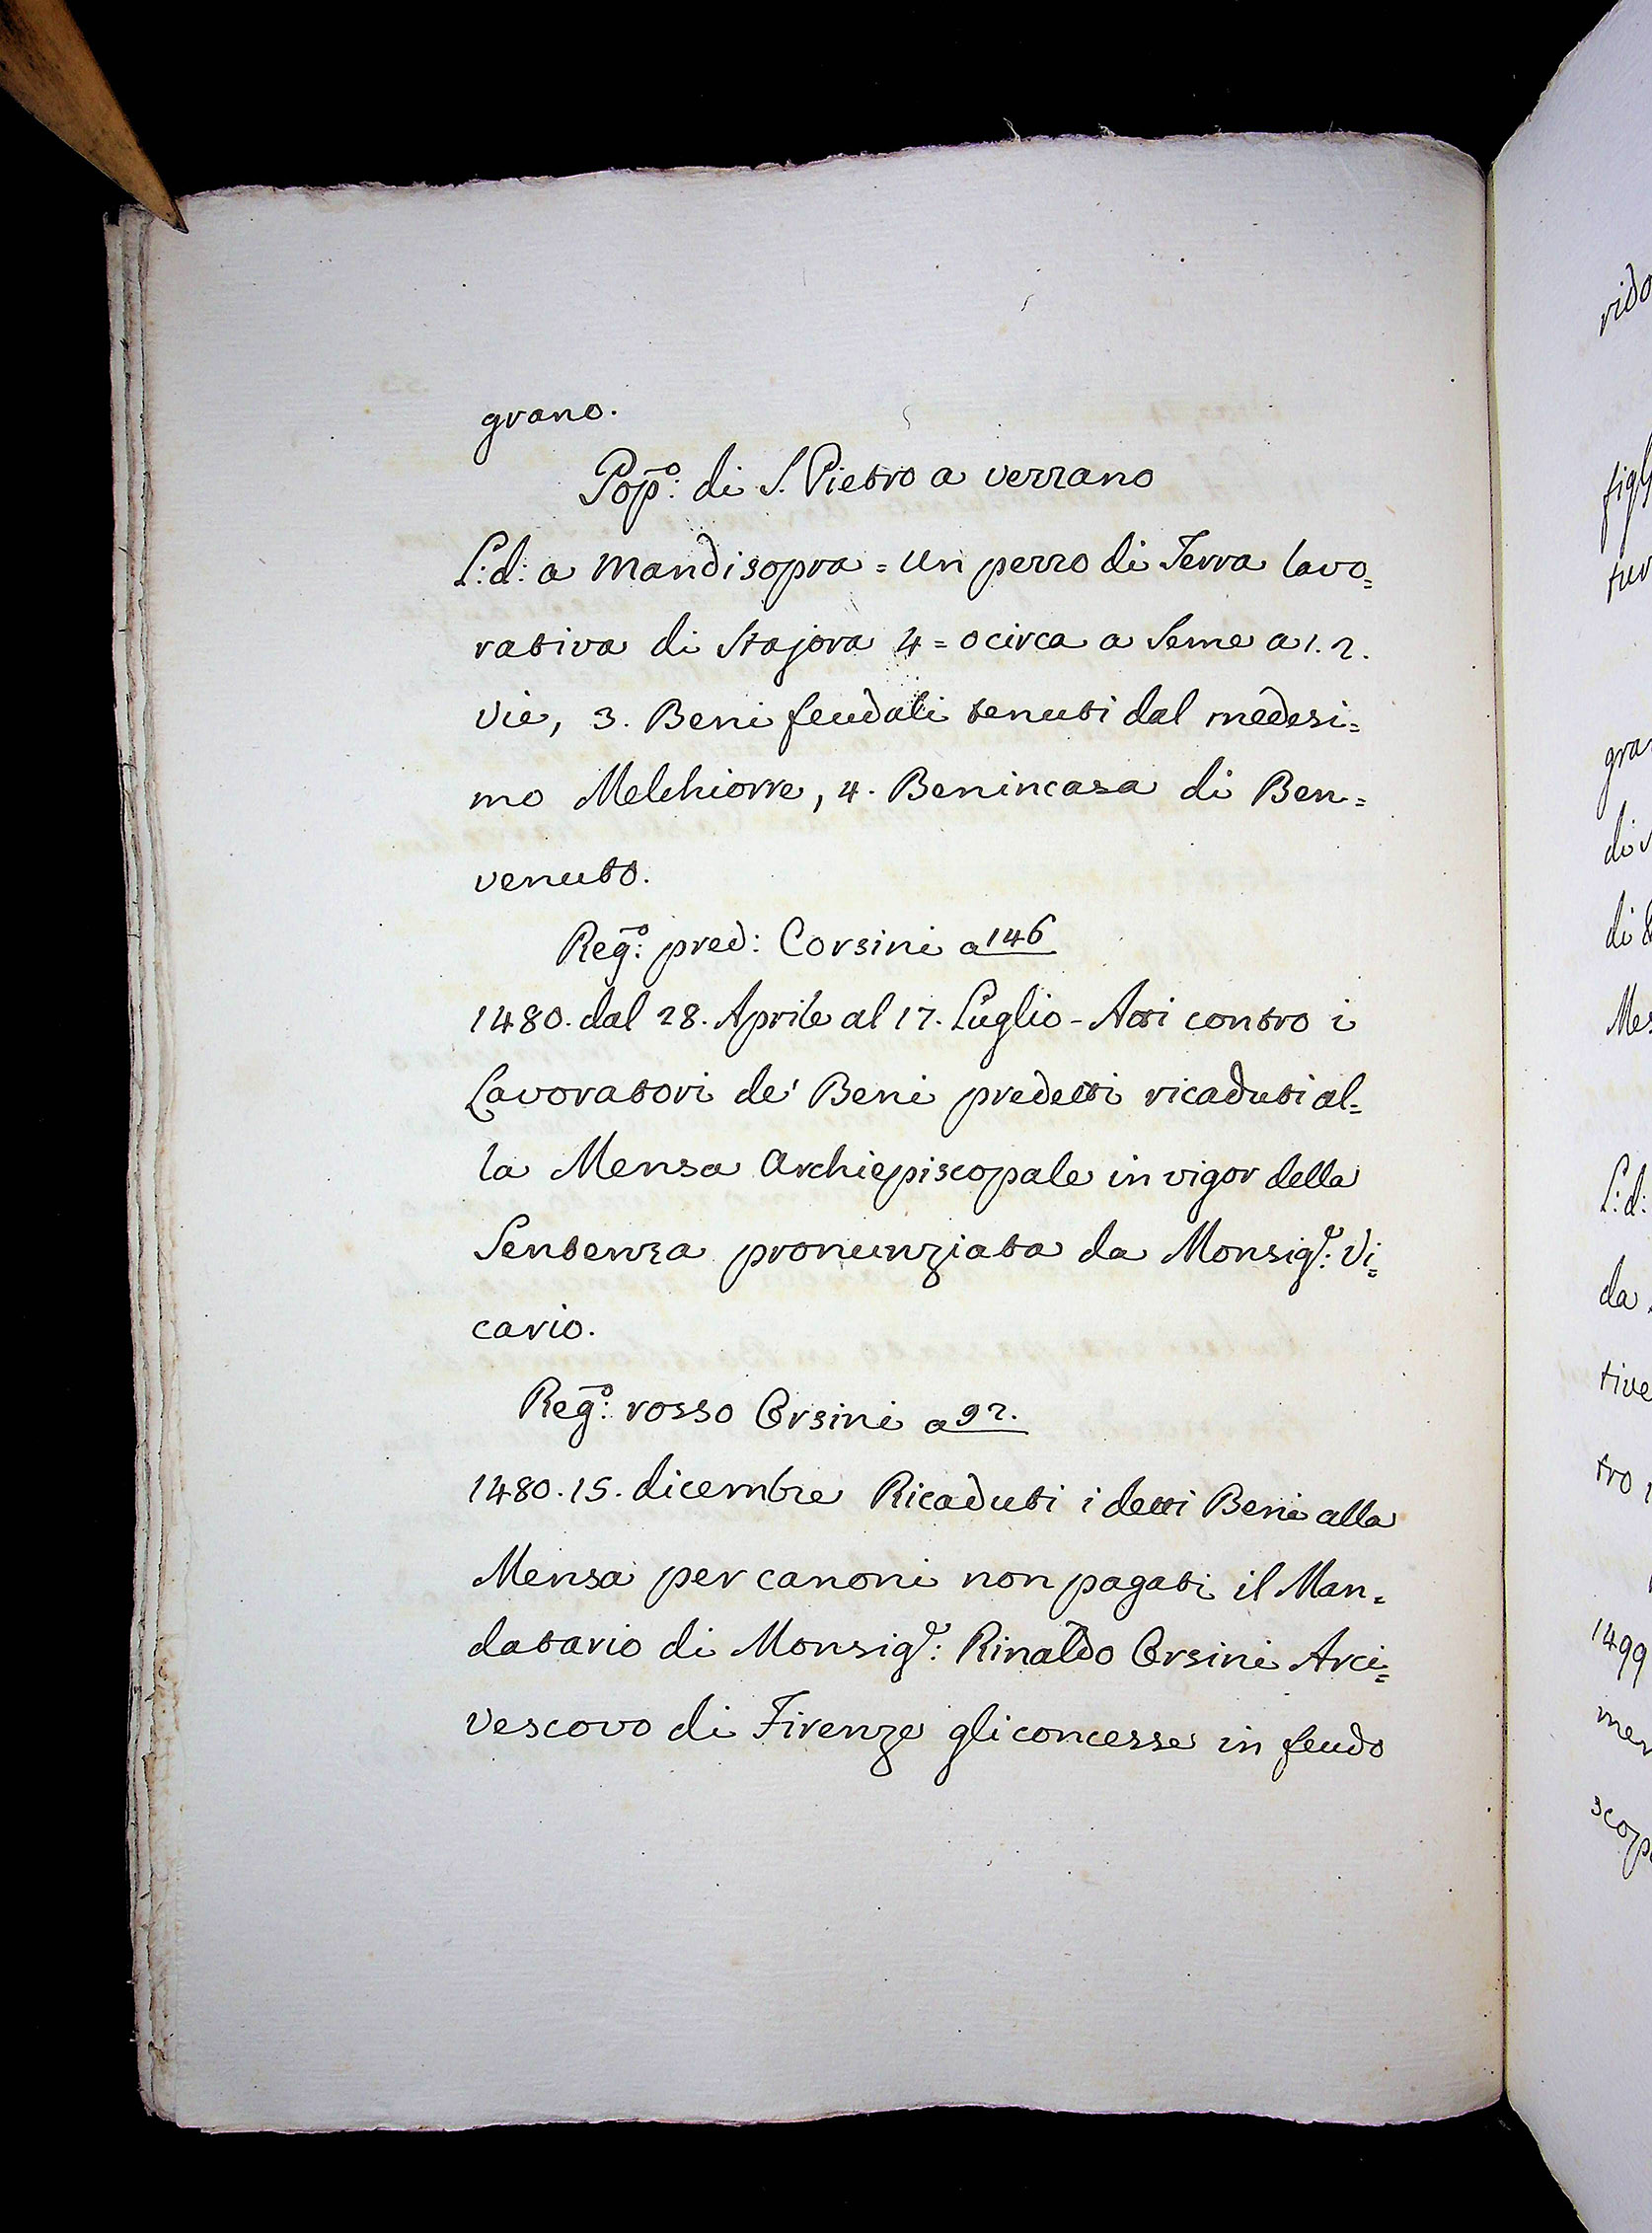 grano.
Pop̄º: di S. Pietro a verzano
L:d: a Mandisopra = Un pezzo di Terra lavo=
rativa di Stajora 4 = o circa a Seme a 1. 2.
vie, 3. Beni feudali tenuti dal medesi=
mo Melchiorre, 4. Benincasa di Ben=
venuto.
Reḡº: pred: Corsini a 146
1480. dal 28. Aprile al 17. Luglio - Atti contro i
Lavoratori de' Beni predetti ricaduti al=
la Mensa Archiepiscopale in vigor della
Sentenza pronunziata da Monsigr: Vi=
cario.
Reḡº: rosso Orsini a 92.
1480. 15. dicembre Ricaduti i detti Beni alla
Mensa per canoni non pagati il Man=
datario di Monsigr: Rinaldo Orsini Arci=
vescovo di Firenze gli concesse in feudo